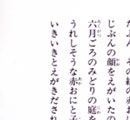 じぶんの顔をえがいたの
六月ごろのみどりの庭を
うれしそうな赤おにと子
いきいきとえがきだされ